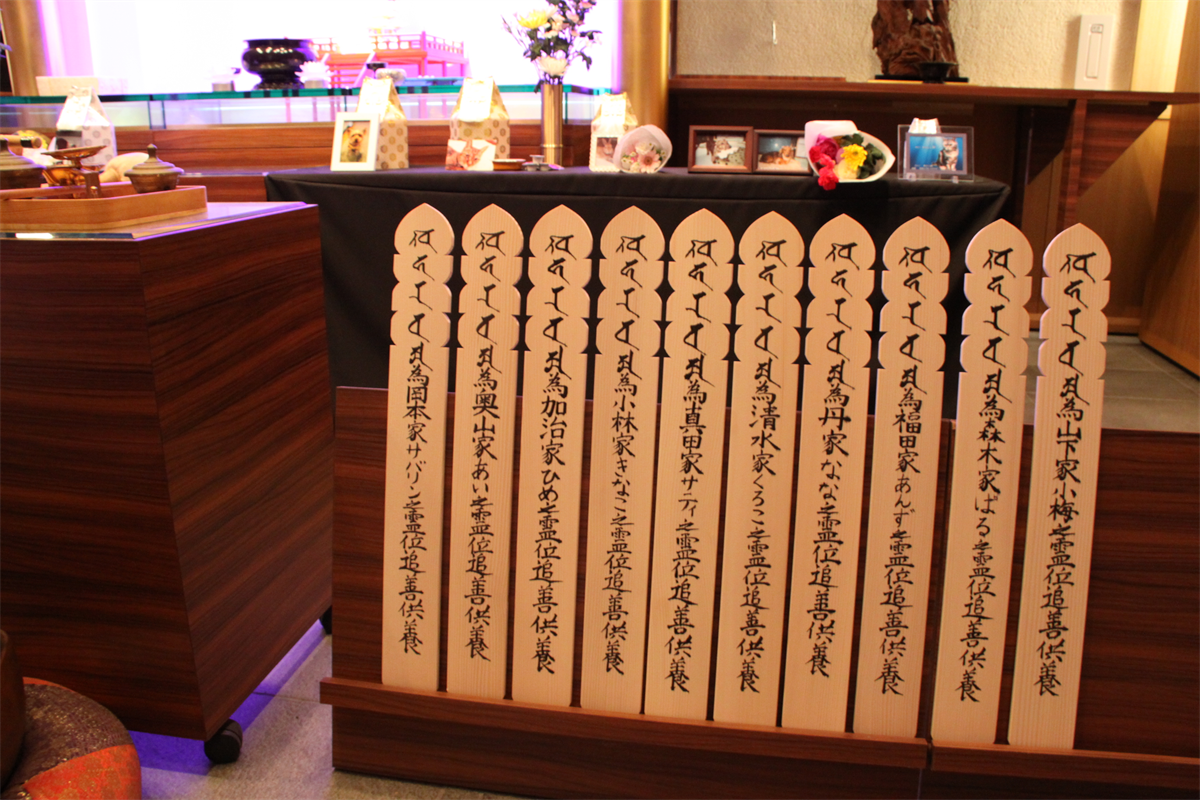 為山下家小梅之霊位追善供養
為森木家ばる之霊位追善供養
為福田家あんず之霊位追善供養
為丹家なな之霊位追善供養
為清水家くろこ之霊位追善供養
為真田家サティ之霊位追善供養
為小林家きなこ之霊位追善供養
為加治家ひめ之霊位追善供養
為奥山家あい之霊位追善供養
為岡本家サバリン之霊位追善供養